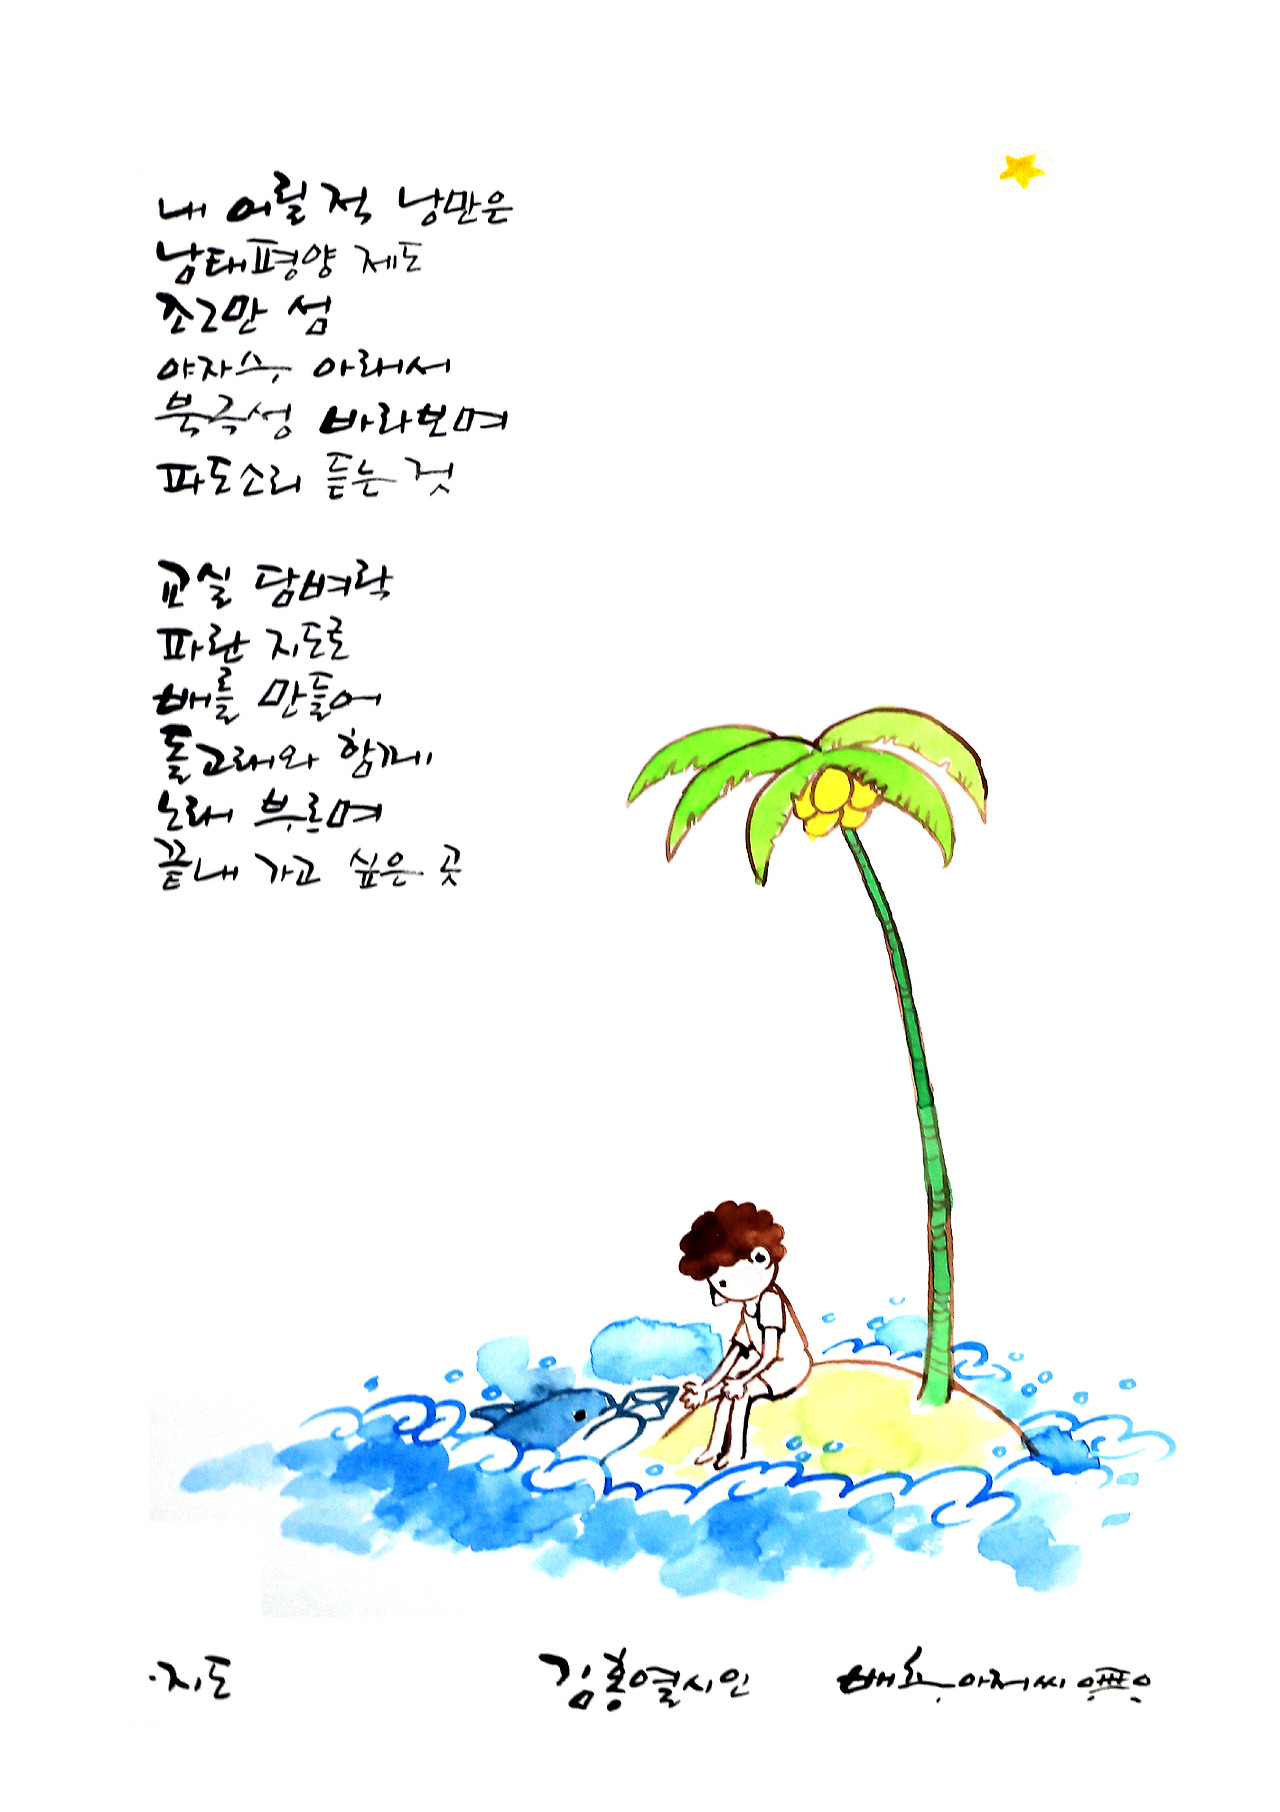 내 어릴 적 낭만은
남태평양 제도
조그만 섬
야자수 아래서
북극성 바라보며
파도소리 듣는 것
교실 담벼락
파란 지도로
배를 만들어
돌고래와 함께
노래 부르며
끝내 가고 싶은 곳
·지도
김홍열시인
아저씨